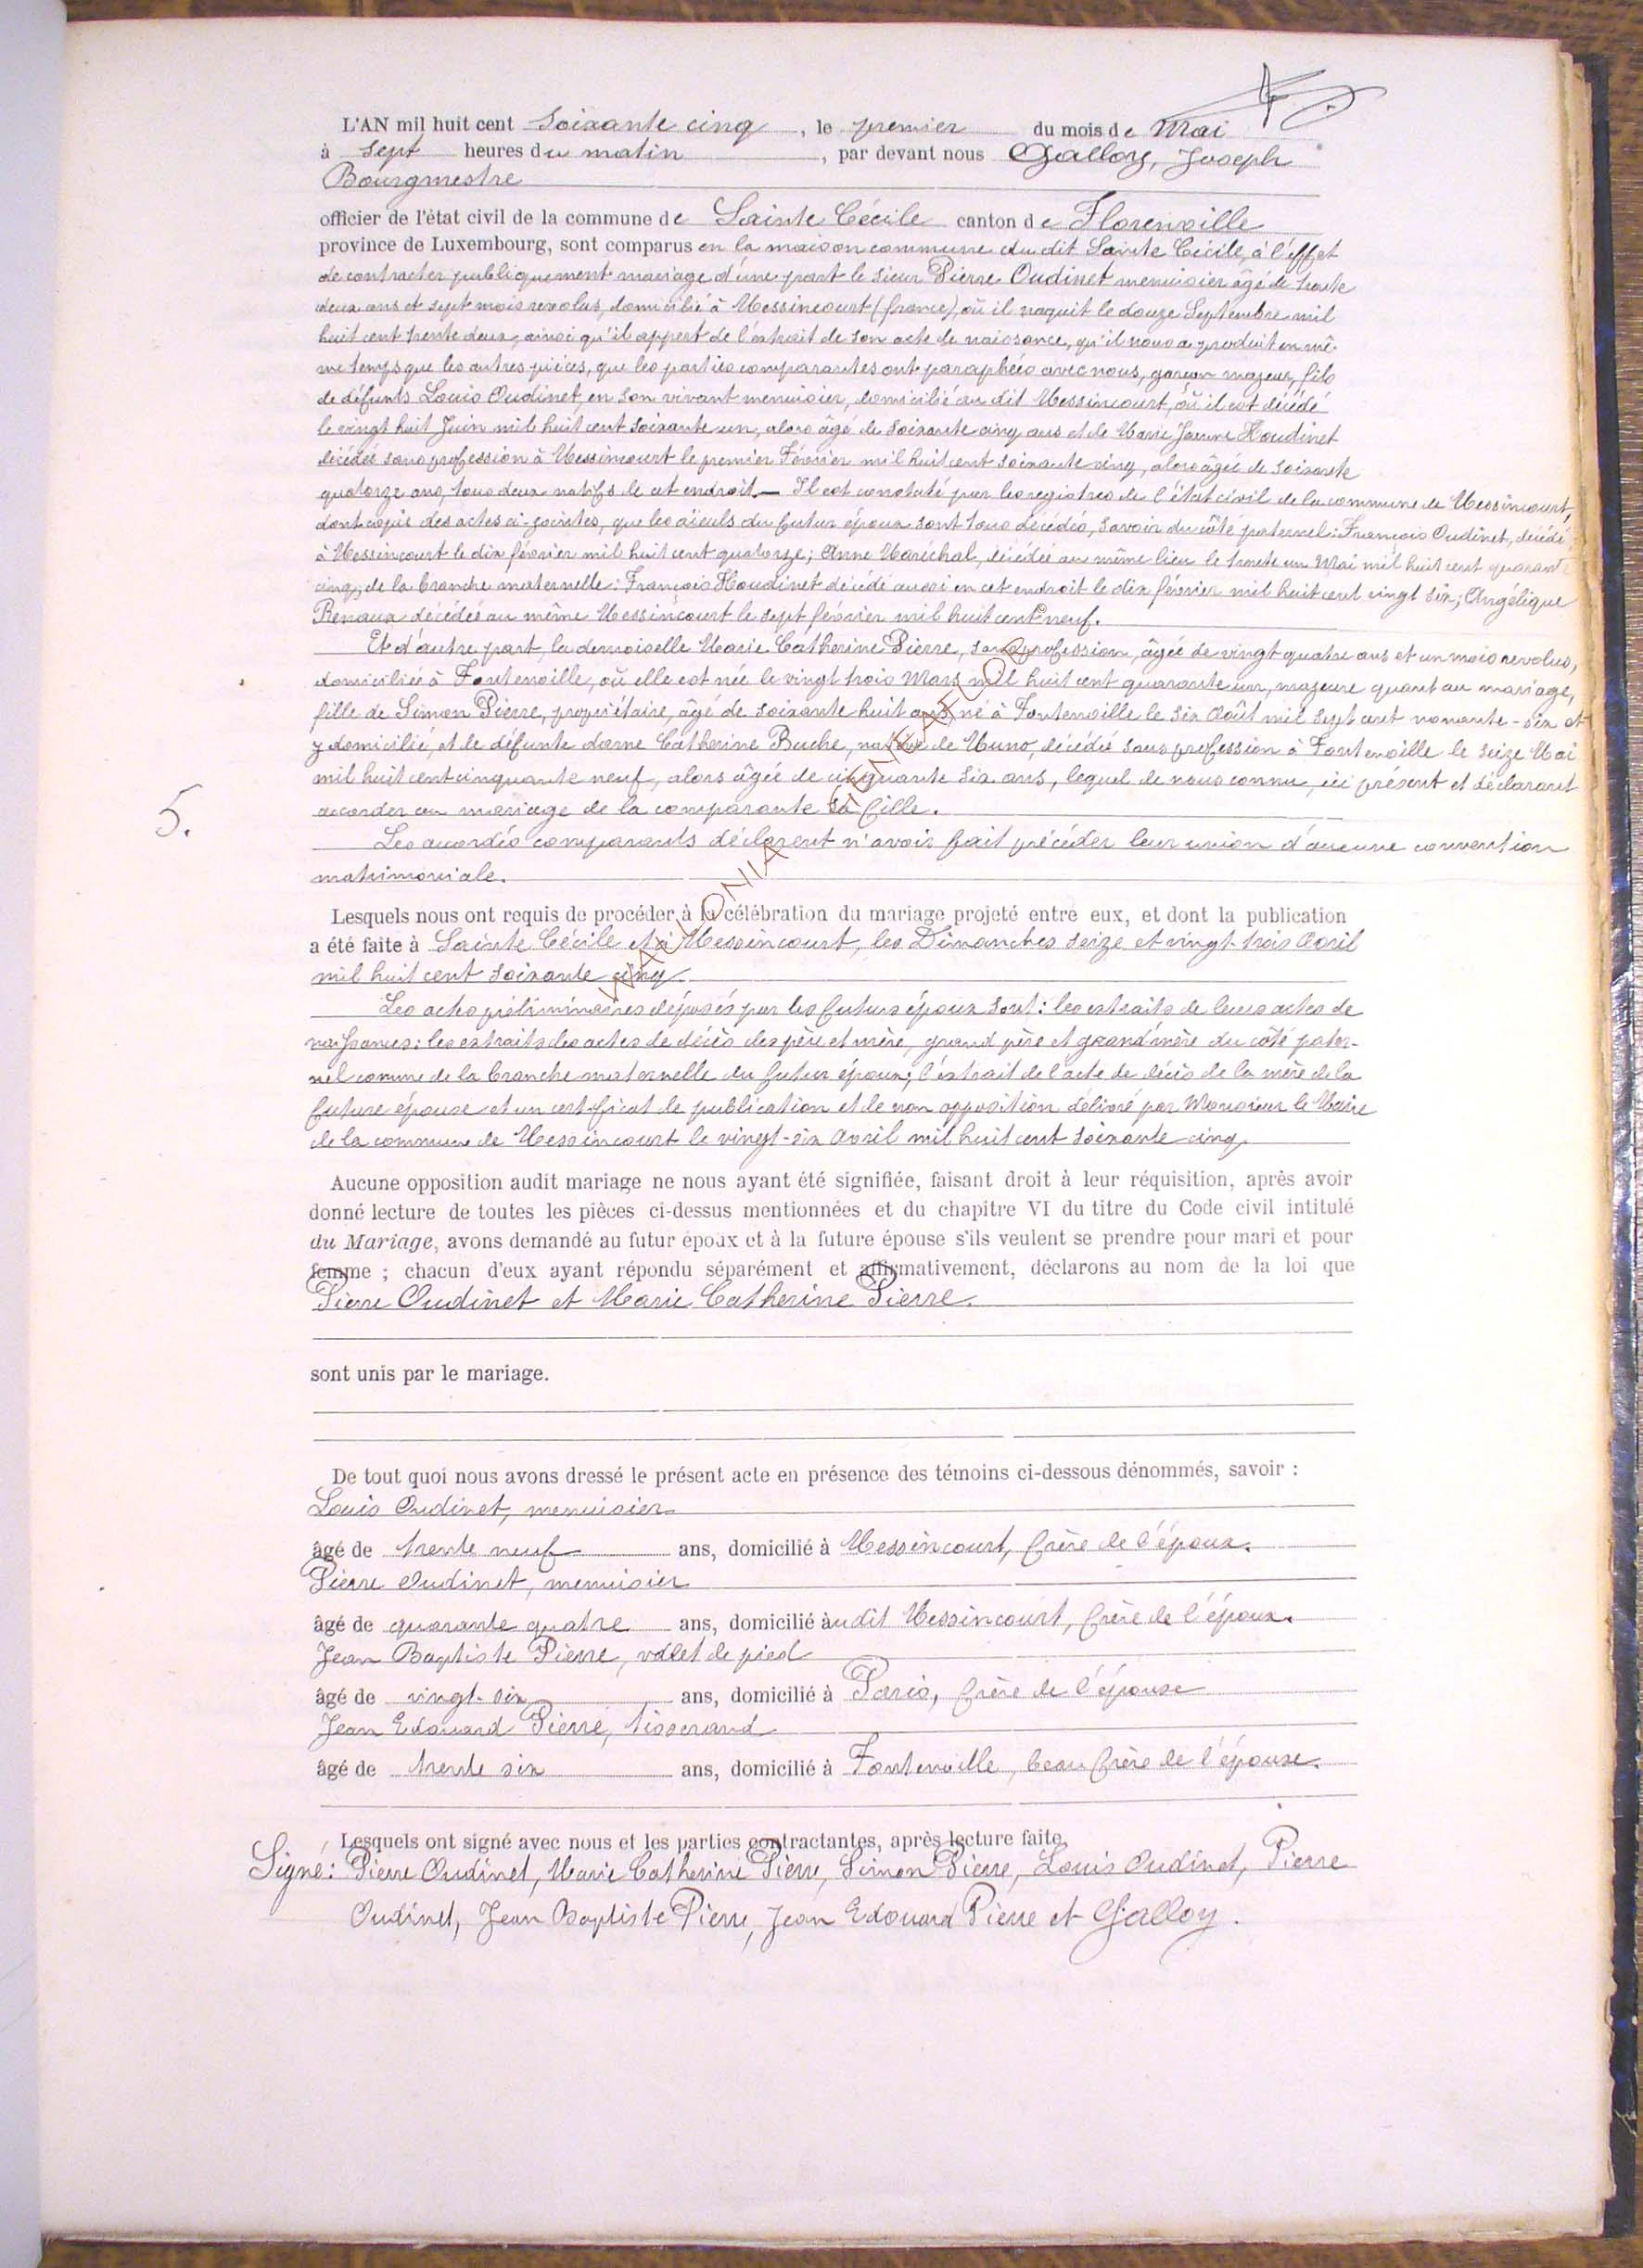 L'AN mil huit cent soixante cinq, le premier du mois de Mai
à sept heures du matin, par devant nous Galloy, Joseph
Bourgmestre
officier de l'état civil de la commune de Sainte Cécile canton de Florenville
province de Luxembourg, sont comparus en la maison commune du dit Sainte Cécile, à l'effet
de contracter publiquement mariage d'une part le sieur Pierre Oudinet menuisier âgé de trente
deux ans et sept mois revolus, domicilié à Messincourt (france), où il naquit le douze Septembre mil
huit cent trente deux, ainsi qu'il appert de l'extrait de son acte de naissance, qu'il nous a produit en mê-
me temps que les autres pièces, que les parties comparantes ont paraphées avec nous, garçon majeur, fils
de défunts Louis Oudinet, en son vivant menuisier, domicilié au dit Messincourt, où il est décédé
le vingt huit Juin mil huit cent soixante un, alors âgé de soixante cinq ans et de Marie Jeanne Houdinet
décédée sans profession à Messincourt le premier Février mil huit cent soixante cinq, alors âgée de soixante
quatorze ans, tous deux natifs de cet endroit. — Il est constaté par les registres de l'état civil de la commune de Messincourt,
dont copie des actes ci-jointes, que les aïeuls du futur époux sont tous décédés, savoir du côté paternel: François Oudinet, décédé
à Messincourt le dix février mil huit cent quatorze; Anne Maréchal, décédée au même lieu le trente un Mai mil huit cent quarante
cinq; de la branche maternelle: François Houdinet décédé aussi en cet endroit le dix février mil huit cent vingt six; Angélique
Renaux décédée au même Messincourt le sept février mil huit cent neuf.
Et d'autre part, la demoiselle Marie Catherine Pierre, sans profession, âgée de vingt quatre ans et un mois revolus,
domiciliée à Fontenoille, où elle est née le vingt trois Mars mil huit cent quarante un, majeure quant au mariage,
fille de Simon Pierre, propriétaire, âgé de soixante huit ans, né à Fontenoille le six Août mil sept cent nonante-six et
y domicilié, et de défunte dame Catherine Buche, native de Muno, décédée sans profession à Fontenoille le seize Mai
mil huit cent cinquante neuf, alors âgée de cinquante six ans, lequel de nous connu, ici présent et déclarant
accorder au mariage de la comparante sa fille.
5.
Les accordés comparants déclarent n'avoir fait précéder leur union d'aucune convention
matrimoniale.
Lesquels nous ont requis de procéder à la célébration du mariage projeté entre eux, et dont la publication
a été faite à Sainte Cécile et à Messincourt, les Dimanches seize et vingt-trois Avril
mil huit cent soixante cinq
Les actes préliminaires déposés par les futurs époux sont: les extraits de leurs actes de
naissances: les extraits des actes de décès des père et mère, grand père et grand'mère du côté pater-
nel comme de la branche maternelle du futur époux; l'extrait de l'acte de décès de la mère de la
future épouse et un certificat de publication et de non opposition délivré par Monsieur le Maire
de la commune de Messincourt le vingt-six Avril mil huit cent soixante cinq
Aucune opposition audit mariage ne nous ayant été signifiée, faisant droit à leur réquisition, après avoir
donné lecture de toutes les pièces ci-dessus mentionnées et du chapitre VI du titre du Code civil intitulé
du Mariage, avons demandé au futur époux et à la future épouse s'ils veulent se prendre pour mari et pour
femme ; chacun d'eux ayant répondu séparément et affirmativement, déclarons au nom de la loi que
Pierre Oudinet et Marie Catherine Pierre.
sont unis par le mariage.
De tout quoi nous avons dressé le présent acte en présence des témoins ci-dessous dénommés, savoir :
Louis Oudinet, menuisier
âgé de trente neuf ans, domicilié à Messincourt, frère de l'époux.
Pierre Oudinet, menuisier
âgé de quarante quatre ans, domicilié àudit Messincourt, frère de l'époux.
Jean Baptiste Pierre, valet de pied
âgé de vingt-six ans, domicilié à Paris, frère de l'épouse
Jean Edouard Pierre, tisserand
âgé de trente six ans, domicilié à Fontenoille, beau frère de l'épouse.
Lesquels ont signé avec nous et les parties contractantes, après lecture faite.
Signé: Pierre Oudinet, Marie Catherine Pierre, Simon Pierre, Louis Oudinet, Pierre
Oudinet, Jean Baptiste Pierre, Jean Edouard Pierre et Galloy.